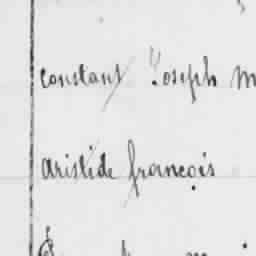 constant Joseph m
aristide françois